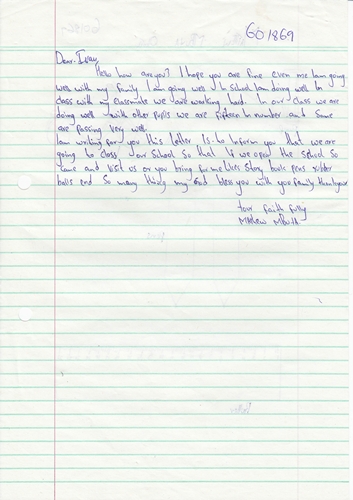 GO1869
Dear. Ivan
Hello how are you? I hope you are fine even me Iam going
well with my family I am going well In school I am doing well In
class with my classmate we are working hard. In our class we are
doing well with other pupils we are fifteen In number and Some
are passing very well.
Iam writing for you this letter Is to Inform you that we are
going to close our School So that if we open the school So
came and visit us or you bring for me likes Story book pens rubber
balls end So many things my God bless you with you family thankyour
your faith fully
Mathew